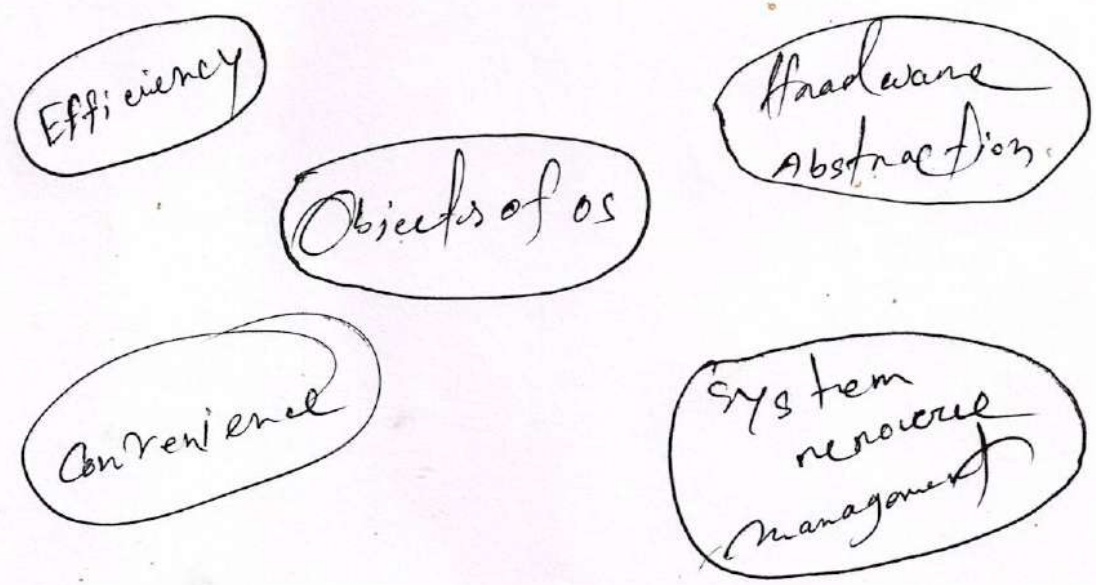 Efficiency
Hardware
Abstraction.
Objects of os
Convenience
System
resource
management